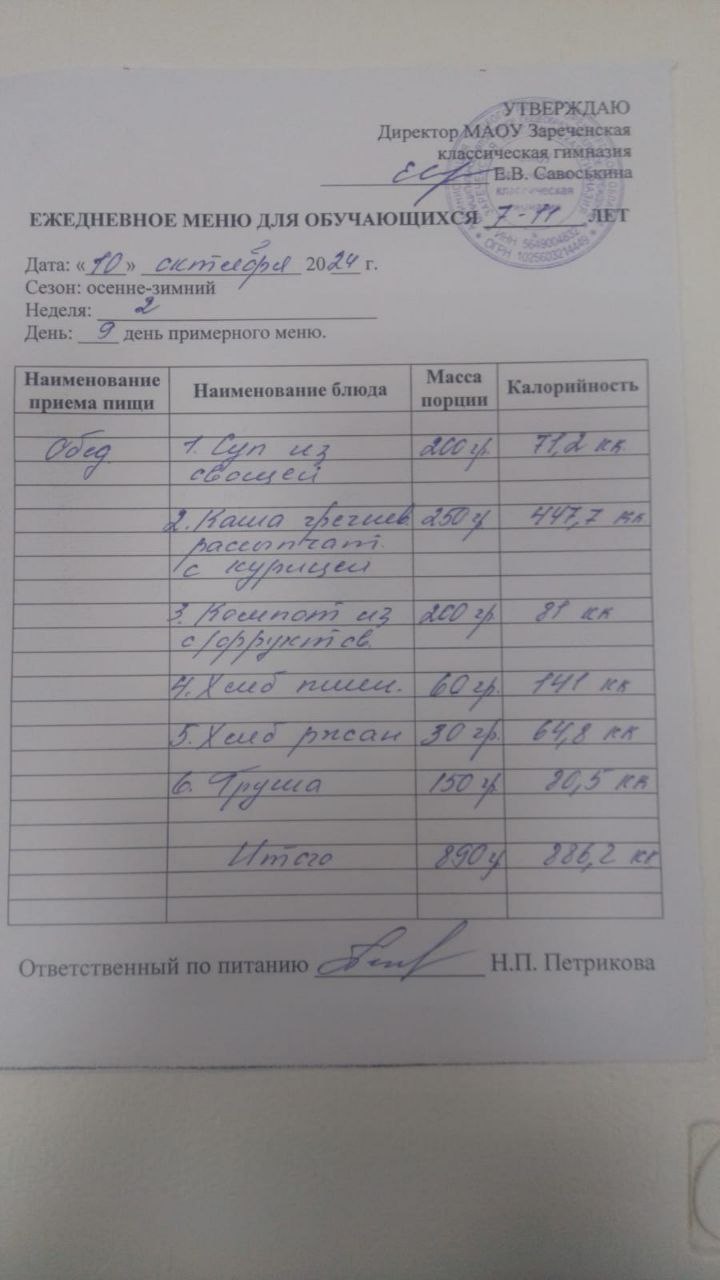 УТВЕРЖДАЮ
Директор МАОУ Зареченская
классическая гимназия
Е.В. Савоськина
ЕЖЕДНЕВНОЕ МЕНЮ ДЛЯ ОБУЧАЮЩИХСЯ 7-11 ЛЕТ
Дата: «10» октября 2024 г.
Сезон: осенне-зимний
Неделя: 2
День: 9 день примерного меню.
Наименование приема пищи Наименование блюда Масса порции Калорийность
Обед 1. Суп из 200 гр. 71,2 кк
овощей
2. Каша гречнев 250 гр 447,7 кк
рассыпчат.
с курицей
3. Компот из 200 гр. 81 кк
с/фруктов.
4. Хлеб пшен. 60 гр. 141 кк
5. Хлеб ржан 30 гр. 64,8 кк
6. Груша 150 гр 80,5 кк
Итого 890 гр 886,2 кк
Ответственный по питанию Н.П. Петрикова
ИНН 5649004832
ОГРН 1025603214449